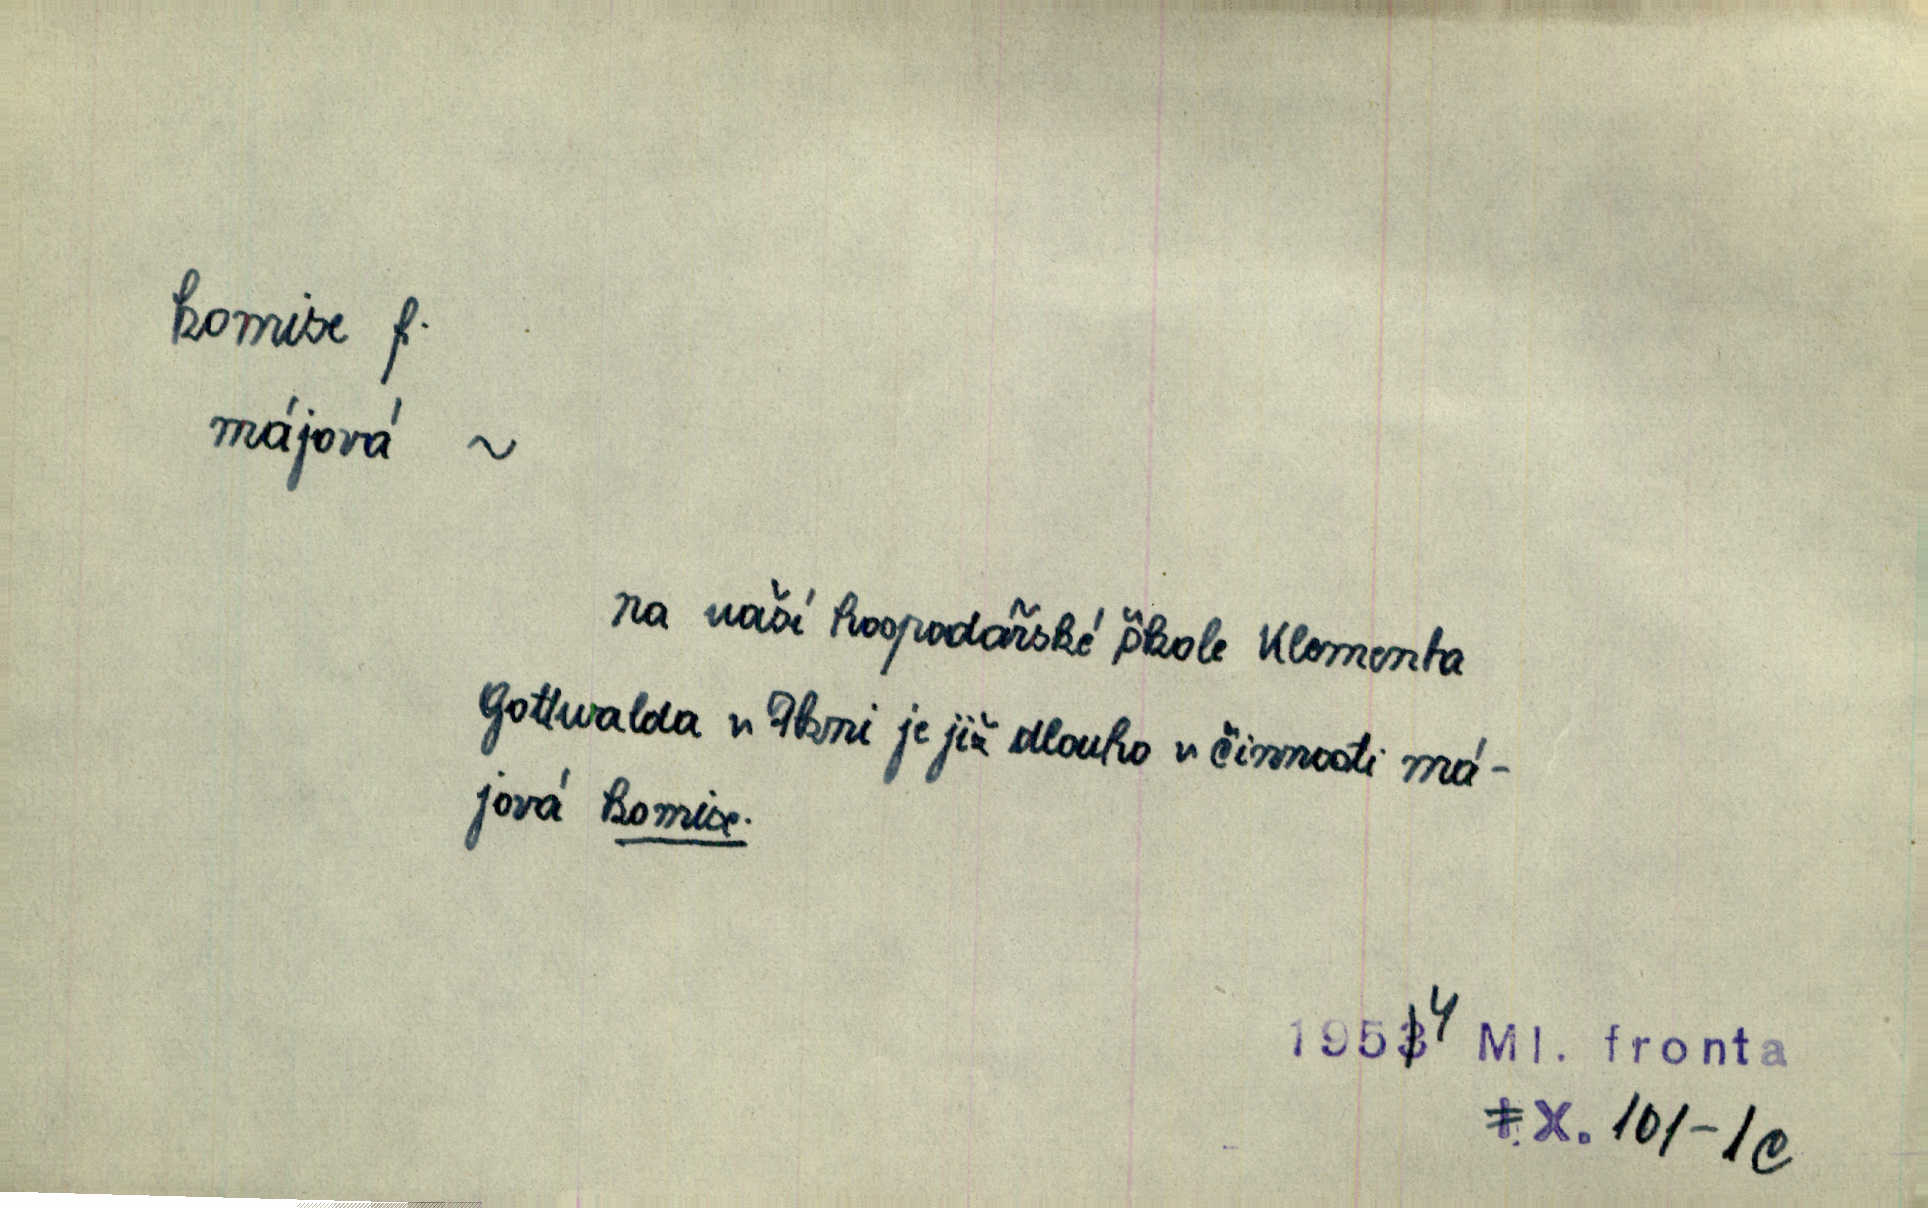 komise f.
májová ~
na naší hospodářské škole Klementa
Gottwalda v Plzni je již dlouho v činnosti má-
jová komise.
1954 Ml. fronta
X. 101-1c